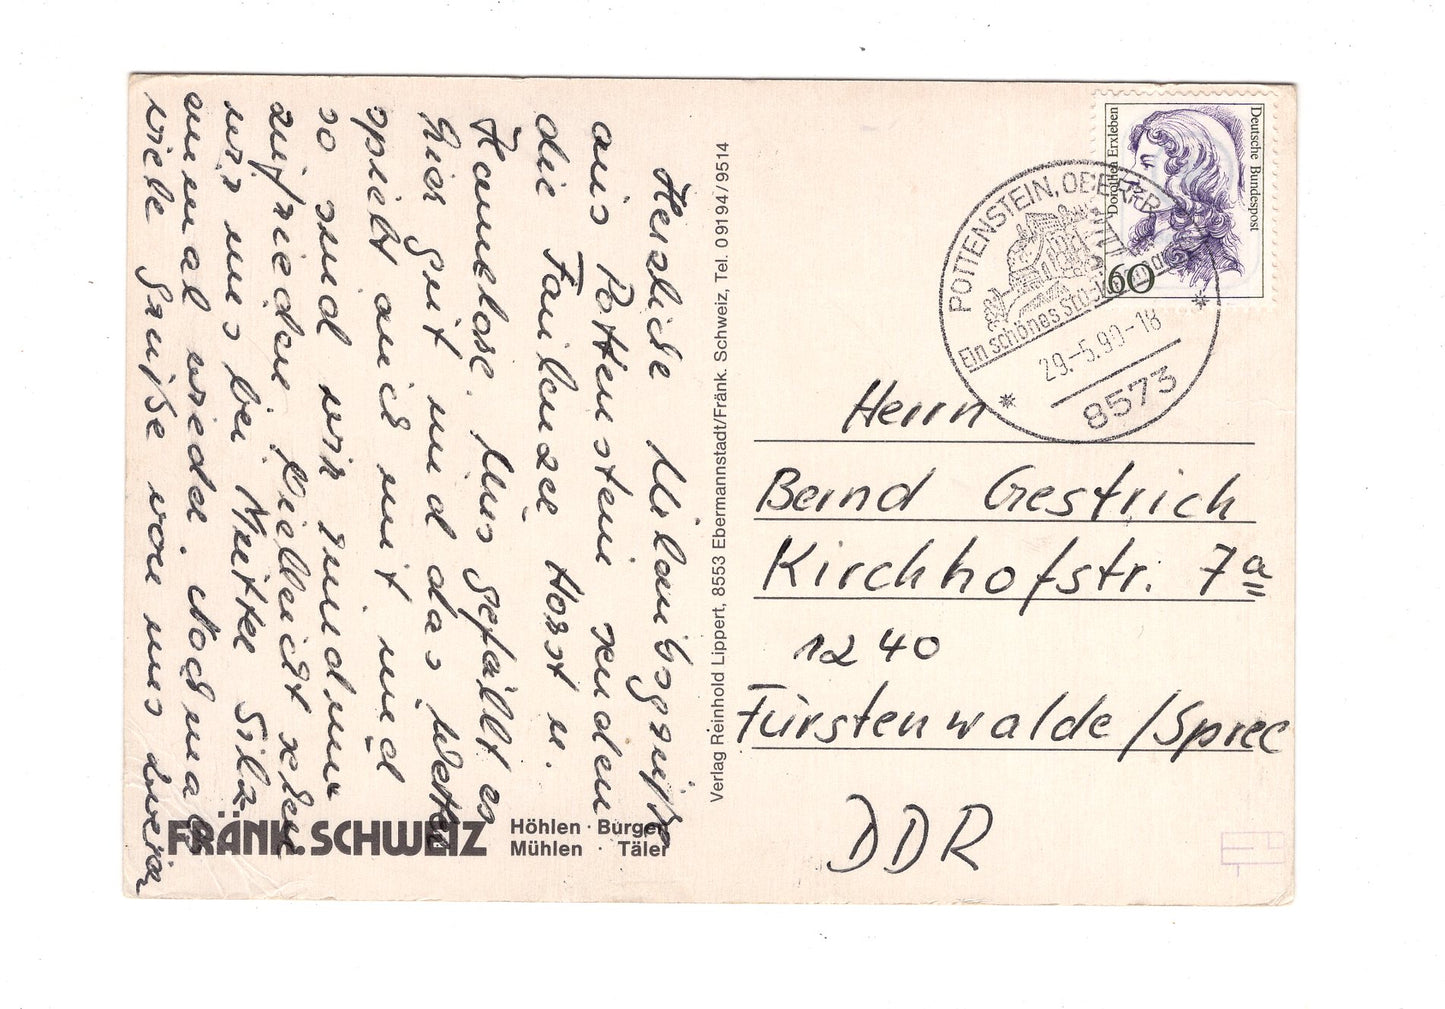 Herzliche Urlaubsgrüße
aus Pottenstein senden
die Familie Horst u.
Hannelore. Uns gefällt es
hier gut und das Wetter
spielt auch mit und
so sind wir rundum
zufrieden. Vielleicht sehen
wir uns bei Mutter Silz
einmal wieder. Nochmals
viele Grüße von uns
FRÄNK. SCHWEIZ
Höhlen · Burgen
Mühlen · Täler
Verlag Reinhold Lippert, 8553 Ebermannstadt/Fränk. Schweiz, Tel. 09194/9514
Deutsche Bundespost
Dorothea Erxleben
60
POTTENSTEIN, OBERFR
Ein schönes Stück
29.-5.90-18
8573
Herrn
Bernd Gestrich
Kirchhofstr. 7a
1240
Fürstenwalde/Spree
DDR